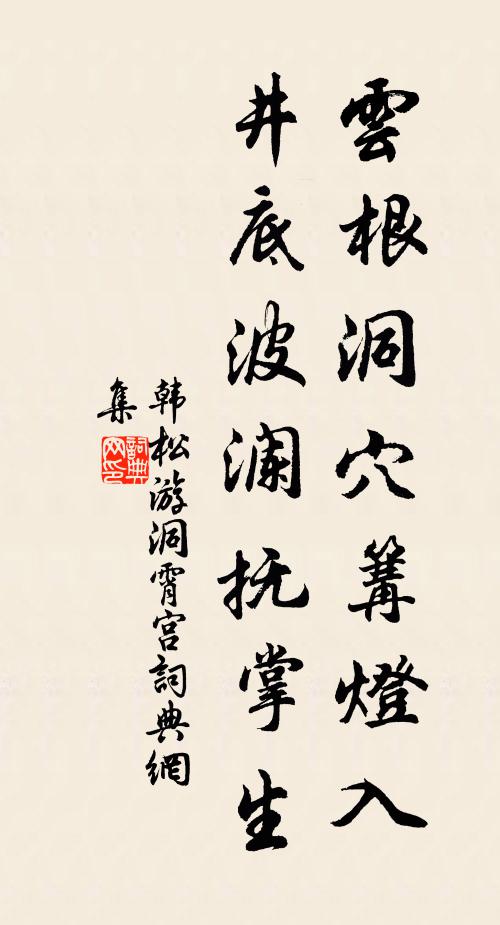 雲根洞穴篝燈入
井底波澜抚掌生
韩松游洞霄宫詞典網
集
詞典网印